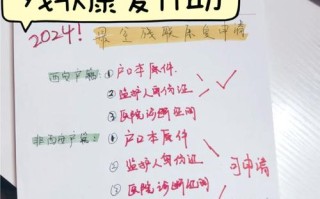 残联康复补助
2024!
最全残联康复申请
西安户籍:
① 户口本原件
② 监护人身份证
③ 医院诊断证明
非西安户籍:
① 户口本原件
② 监护人身份证
③ 医院诊断证明
可申请